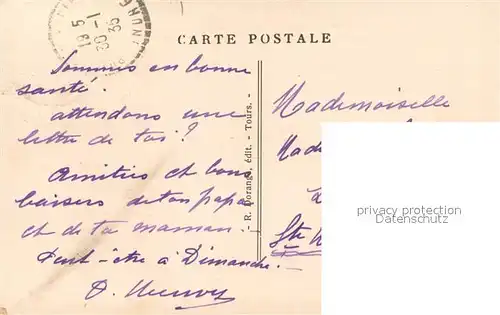 19 5
30 - 1
35
CARTE POSTALE
Sommes en bonne
santé.
attendons une
lettre de toi ?
Amitiés et bons
baisers de ton papa
et de ta maman.
Peut-être à Dimanche.-
R. Dorange, édit. - Tours. -
Mademoiselle
Made
Ste
privacy protection
Datenschutz